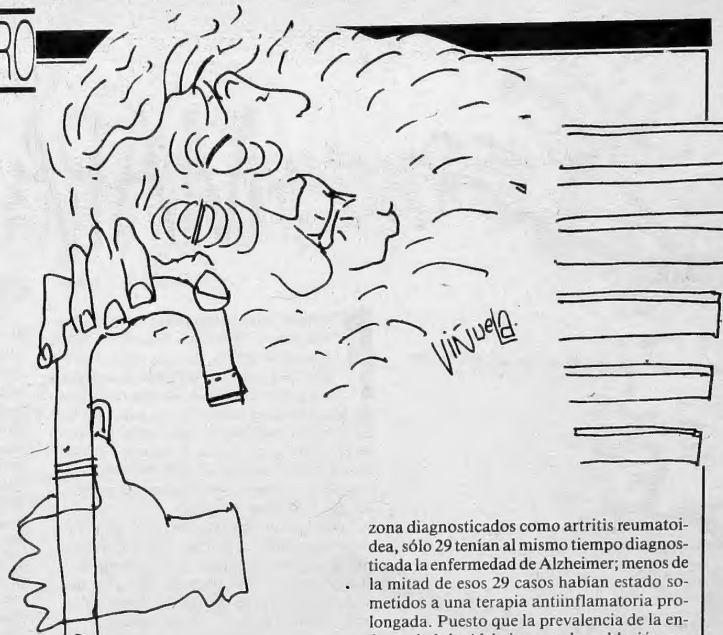 RO
VIÑUELA.
zona diagnosticados como artritis reumatoi-
dea, sólo 29 tenían al mismo tiempo diagnos-
ticada la enfermedad de Alzheimer; menos de
la mitad de esos 29 casos habían estado so-
metidos a una terapia antiinflamatoria pro-
longada. Puesto que la prevalencia de la en-